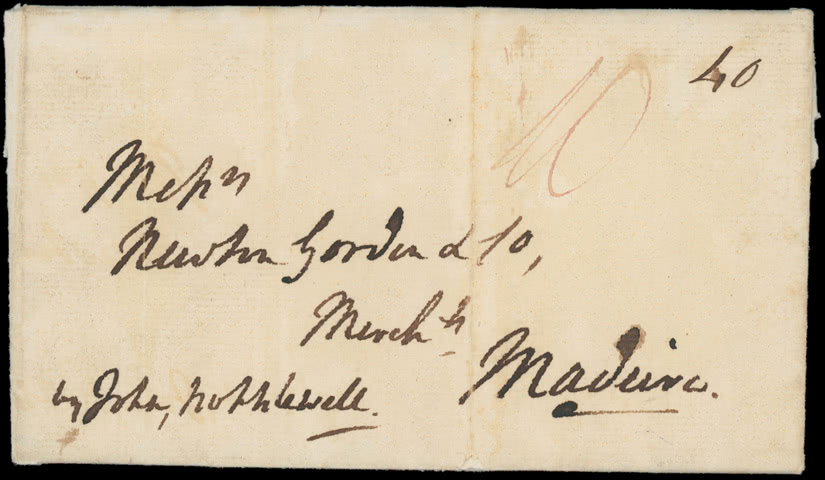 40
40
Messrs
Newton Gordon & Co,
Merchts
Madeira.
by John,